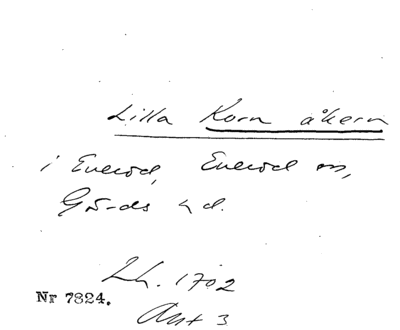 Lilla Korn åkern
i Everöd, Everöd sn,
Gärds hd.
Lh. 1702
Nr 7824.
Akt 3